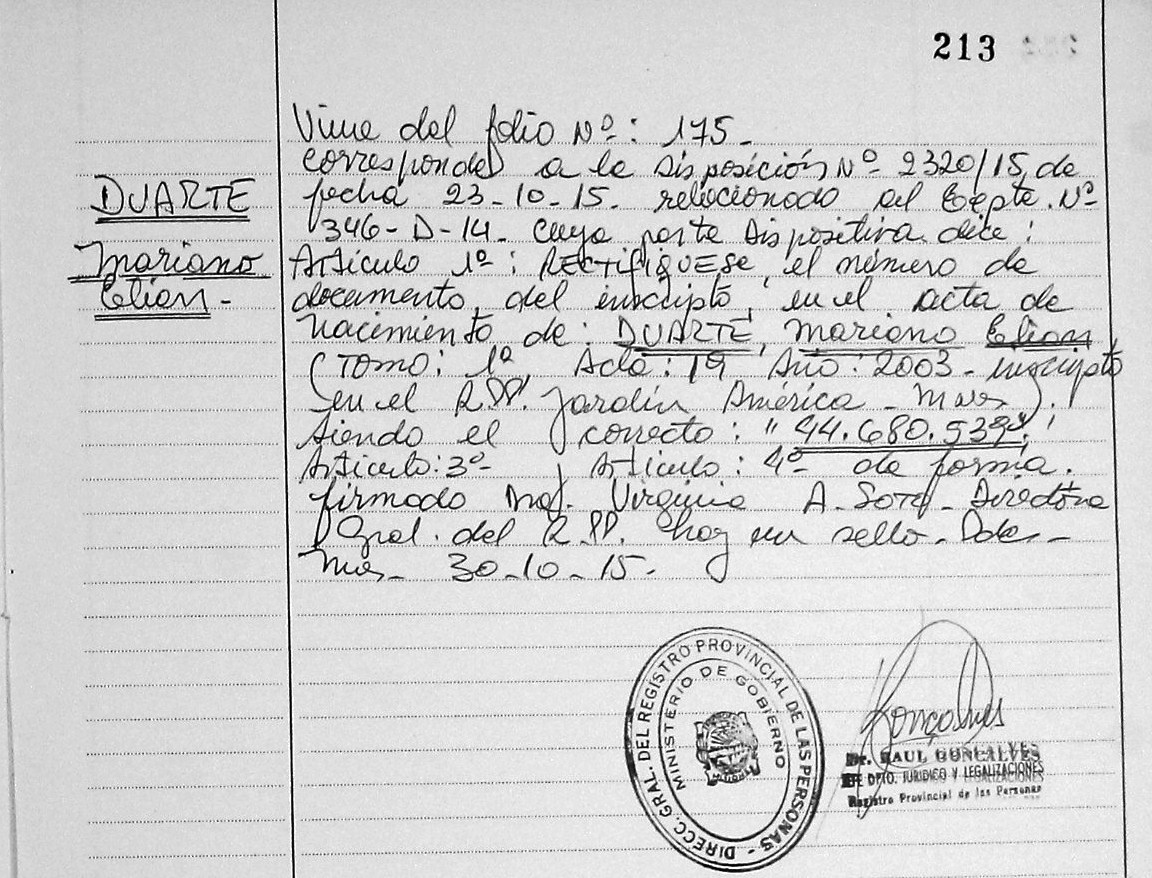 213
Viene del folio Nº: 175-
corresponde a la Disposición Nº 2320/15 de
fecha 23-10-15. relacionado al Expte. Nº
346-D-14- cuya parte Dispositiva dice:
Artículo 1º: RECTIFIQUESE, el número de
documento del inscripto, en el acta de
nacimiento de: DUARTE, Mariano Elian
(Tomo: 1º Acta: 19 Año: 2003- inscripto
en el R.PP. Jardín América - Mnes).
siendo el correcto: "44.680.539".
Artículo: 3º- Artículo: 4º- de forma.
firmado Virginia A. Soto- Directora
Gral. del R.PP. hay un sello- Pdas-
Mnes- 30-10-15.
DUARTE
Mariano
Elian-
DIRECC. GRAL. DEL REGISTRO PROVINCIAL DE LAS PERSONAS -
MINISTERIO DE GOBIERNO
Gonçalves
Dr. RAUL GONCALVES
JEFE DPTO. JURIDICO Y LEGALIZACIONES
Registro Provincial de las Personas